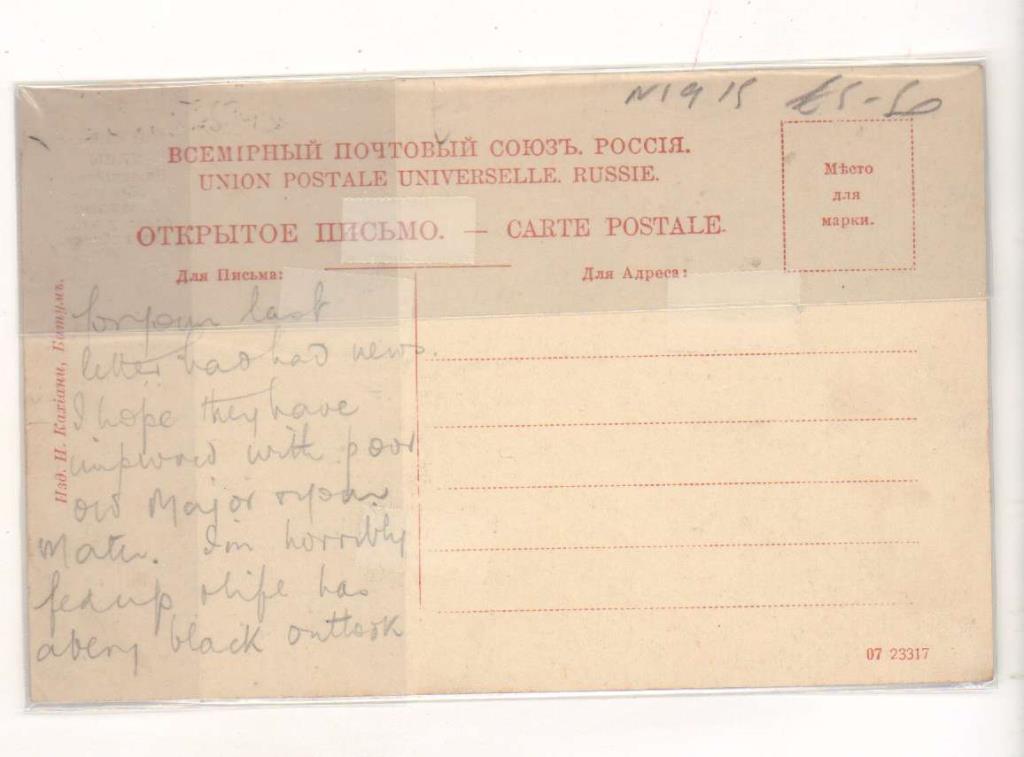 N1915 £5-50
ВСЕМІРНЫЙ ПОЧТОВЫЙ СОЮЗЪ. РОССІЯ.
UNION POSTALE UNIVERSELLE. RUSSIE.
Мѣсто
для
марки.
ОТКРЫТОЕ ПИСЬМО. — CARTE POSTALE.
Для Письма:
Для Адреса:
Изд. И. Кахіани, Батумъ.
for your last
letter had bad news.
I hope they have
improved with poor
old Major & your
Mater. I'm horribly
fed up & life has
a very black outlook
07 23317